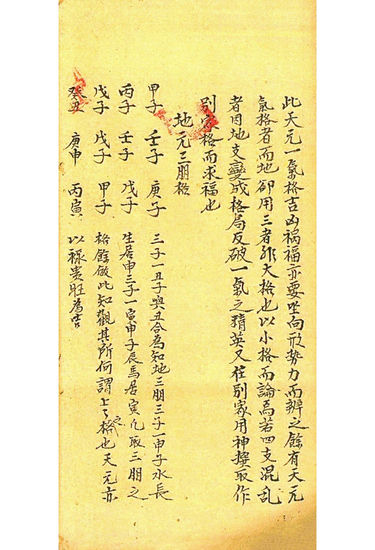 此天元一氣格吉凶禍福亦要坐向形勢力而辨之餘有天元
氣格者而地卻用三者非大格也以小格而論焉若四支混乱
者因地支變成格局反破一氣之精英又任別家用神撰取作
別家格而求福也
地元三朋格
甲子 壬子 庚子 三子一丑子與丑合為知地三朋三子一申子水長
丙子 壬子 戊子 生居申三子一寅甲子辰馬居寅凡取三朋之
戊子 戊子 甲子 格餘倣此知觀其所何謂上之格也天元亦
癸丑 庚申 丙寅 以祿貴旺為吉